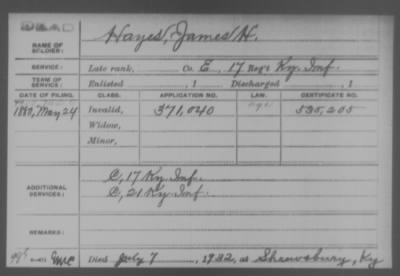 DEAD
NAME OF SOLDIER: Hayes, James H.
SERVICE: Late rank, Co. E, 17 Reg't Ky. Inf.
TERM OF SERVICE: Enlisted , 1 Discharged , 1
DATE OF FILING. CLASS. APPLICATION NO. LAW. CERTIFICATE NO.
1880, May 24 Invalid, 371,040 535,205
Widow,
Minor,
ADDITIONAL SERVICES: C, 17 Ky. Inf.
C, 21 Ky. Inf.
REMARKS:
Died July 7, 1932, at Shrewsbury, Ky